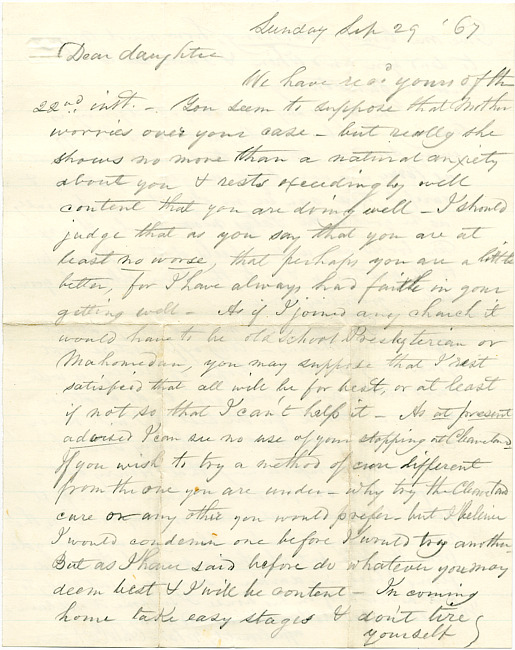 Sunday Sep 29 '67
Dear daughter
We have recd yours of the
22nd inst. - You seem to suppose that Mother
worries over your case - but really she
shows no more than a natural anxiety
about you & rests exceedingly well
content that you are doing well - I should
judge that as you say that you are at
least no worse, that perhaps you are a little
better, for I have always had faith in your
getting well - As if I joined any church it
would have to be old school Presbyterian or
Mahomedan, you may suppose that I rest
satisfied that all will be for best, or at least
if not so that I can't help it - As at present
advised I can see no use of your stopping at Cleveland
If you wish to try a method of cure different
from the one you are under - why try the Cleveland
cure or any other you would prefer - but I believe
I would condemn one before I would try another.
But as I have said before do whatever you may
deem best & I will be content - In coming
home take easy stages & don't tire
yourself